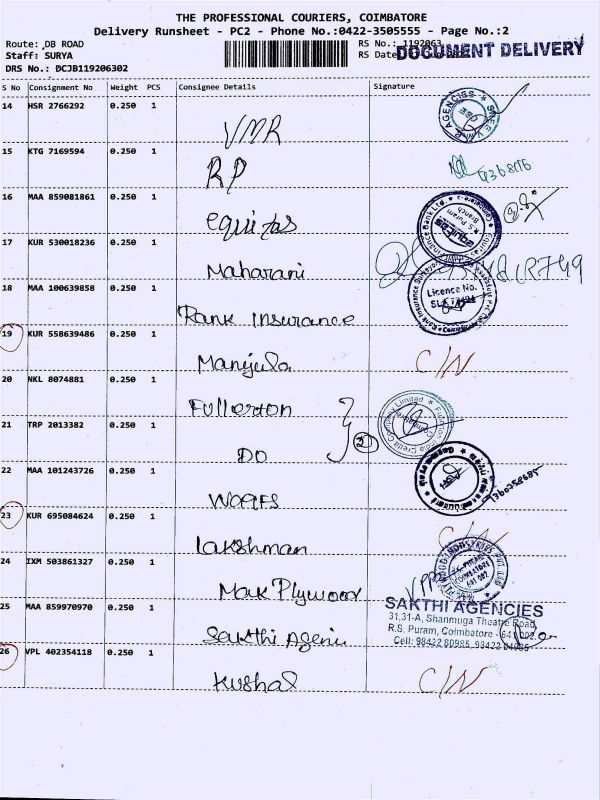 THE PROFESSIONAL COURIERS, COIMBATORE
Delivery Runsheet - PC2 - Phone No.:0422-3505555 - Page No.:2
Route: DB ROAD
RS No.: 1192063
Staff: SURYA
RS Date
DOCUMENT DELIVERY
DRS No.: DCJB119206302
S No Consignment No Weight PCS Consignee Details Signature
14 HSR 2766292 0.250 1
VMR
15 KTG 7169594 0.250 1
RP
16 MAA 859081861 0.250 1
equitas
17 KUR 530018236 0.250 1
Maharani
18 MAA 100639858 0.250 1
Licence No.
Rank Insurance
19 KUR 558639486 0.250 1
Manjula C/N
20 NKL 8074881 0.250 1
Fullerton
21 TRP 2013382 0.250 1
DO 2
22 MAA 101243726 0.250 1
23 KUR 695084624 0.250 1
C/N
lakshman
24 IXM 503861327 0.250 1
Mak Plywood VPP
25 MAA 859970970 0.250 1
SAKTHI AGENCIES
31,31-A, Shanmuga Theatre Road,
R.S. Puram, Coimbatore - 641 002.
Cell: 98422 80985, 98422
Sakthi Agenci
26 VPL 402354118 0.250 1
Kushal C/N